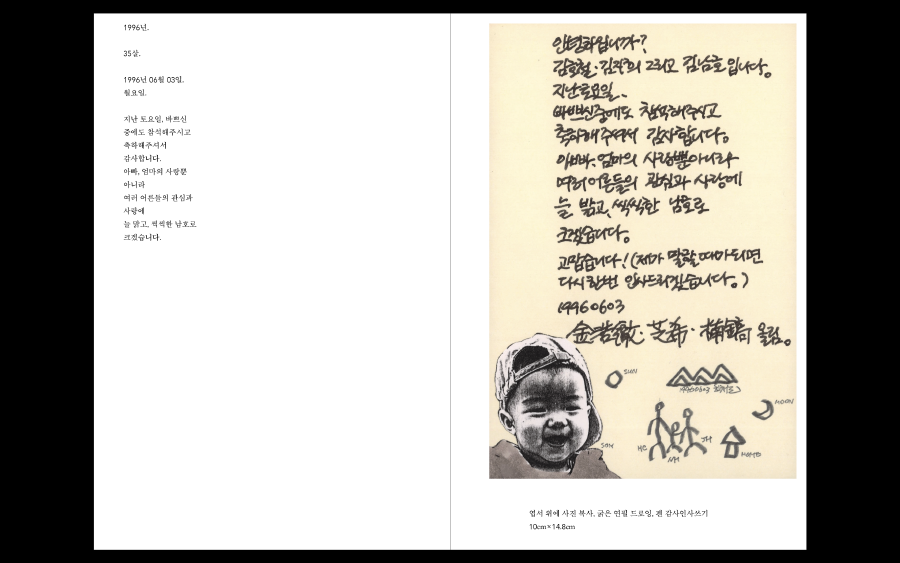 1996년.
35살.
1996년 06월 03일.
월요일.
지난 토요일, 바쁘신
중에도 참석해주시고
축하해주셔서
감사합니다.
아빠, 엄마의 사랑뿐
아니라
여러 어른들의 관심과
사랑에
늘 맑고, 씩씩한 남호로
크겠습니다.
안녕하십니까?
김호철·김지희 그리고 김남호입니다.
지난 토요일,
바쁘신중에도 참석해주시고
축하해주셔서 감사합니다.
아빠, 엄마의 사랑뿐아니라
여러어른들의 관심과 사랑에
늘 밝고, 씩씩한 남호로
크겠습니다.
고맙습니다! (제가 말할때가되면
다시한번 인사드리겠습니다.)
19960603
올림。
SUN
MOON
SON
ME
NH
JH
HOME
엽서 위에 사진 복사, 굵은 연필 드로잉, 펜 감사인사쓰기
10cm×14.8cm